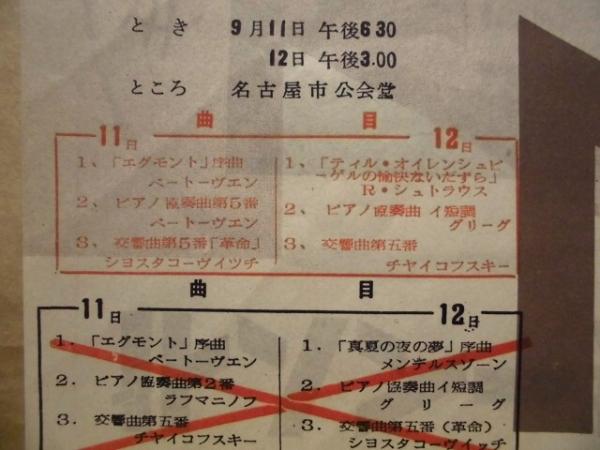 とき 9月11日 午後6 30
12日 午後3.00
ところ 名古屋市公会堂
曲目
11日
1、「エグモント」序曲
ベートーヴエン
2、ピアノ協奏曲第5番
ベートーヴエン
3、交響曲第5番「革命」
シヨスタコーヴイツチ
12日
1、「ティル・オイレンシュピ
ーゲルの愉快ないたずら」
R・シュトラウス
2、ピアノ協奏曲 イ短調
グリーグ
3、交響曲第五番
チヤイコフスキー
曲目
11日
1.「エグモント」序曲
ベートーヴエン
2.ピアノ協奏曲第2番
ラフマニノフ
3.交響曲第五番
チヤイコフスキー
12日
1.「真夏の夜の夢」序曲
メンデルスゾーン
2.ピアノ協奏曲イ短調
グリーグ
3.交響曲第五番(革命)
シヨスタコーヴイッチ